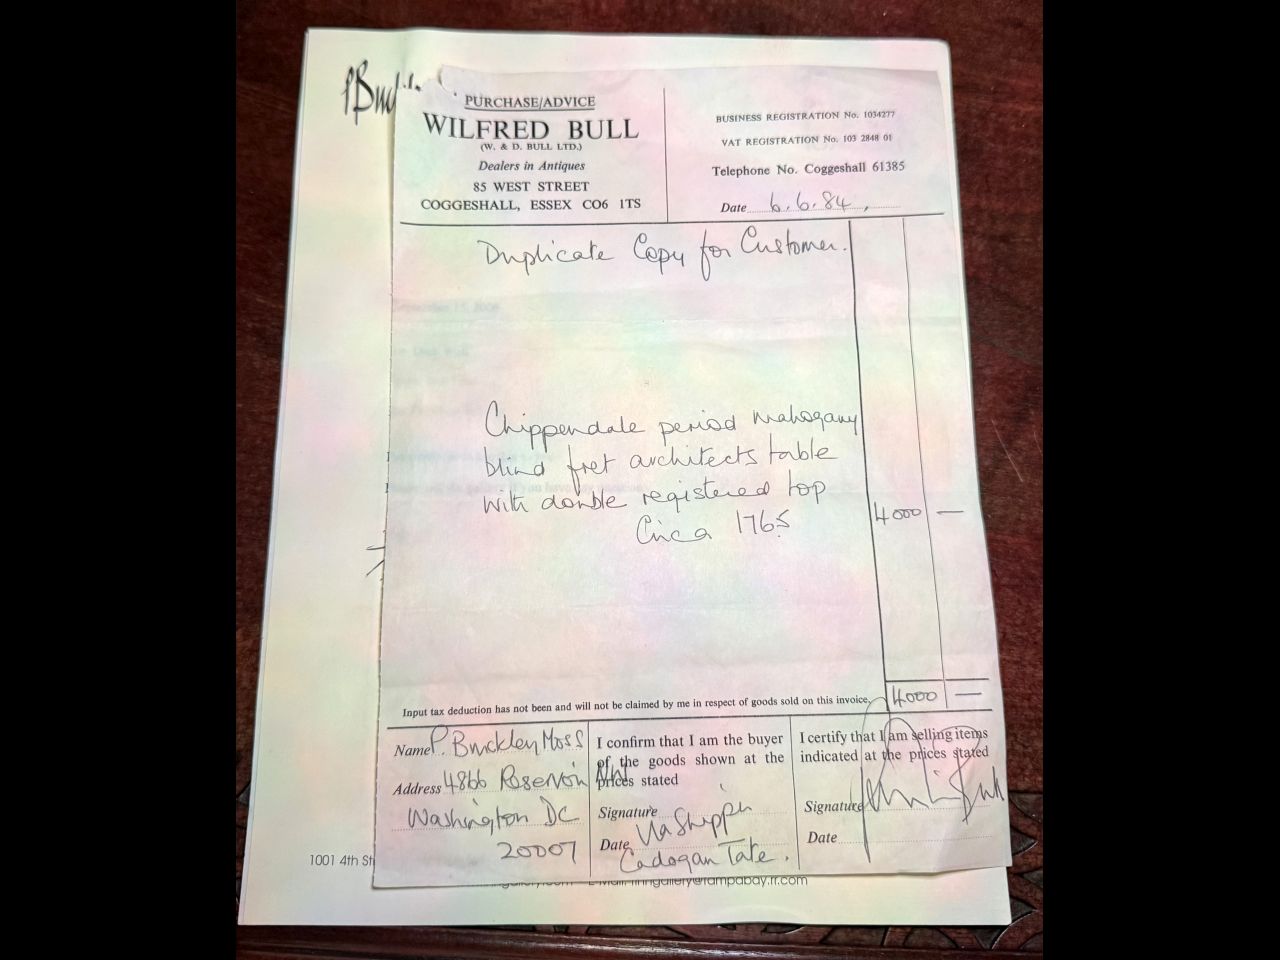 PURCHASE/ADVICE
WILFRED BULL
(W. & D. BULL LTD.)
Dealers in Antiques
85 WEST STREET
COGGESHALL, ESSEX CO6 1TS
BUSINESS REGISTRATION No. 1034277
VAT REGISTRATION No. 103 2848 01
Telephone No. Coggeshall 61385
Date 6.6.84.
Duplicate Copy for Customer.
Chippendale period mahogany
blind fret architects table
with double registered top
Circa 1765
4000 —
4000 —
Input tax deduction has not been and will not be claimed by me in respect of goods sold on this invoice.
Name P. Buckley Moss
Address 4866 Reservoir NW
Washington DC
20007
I confirm that I am the buyer
of the goods shown at the
prices stated
Signature Via Shipper
Date
Cadogan Tate.
I certify that I am selling items
indicated at the prices stated
Signature
Date
1001 4th St
gallery@tampabay.rr.com